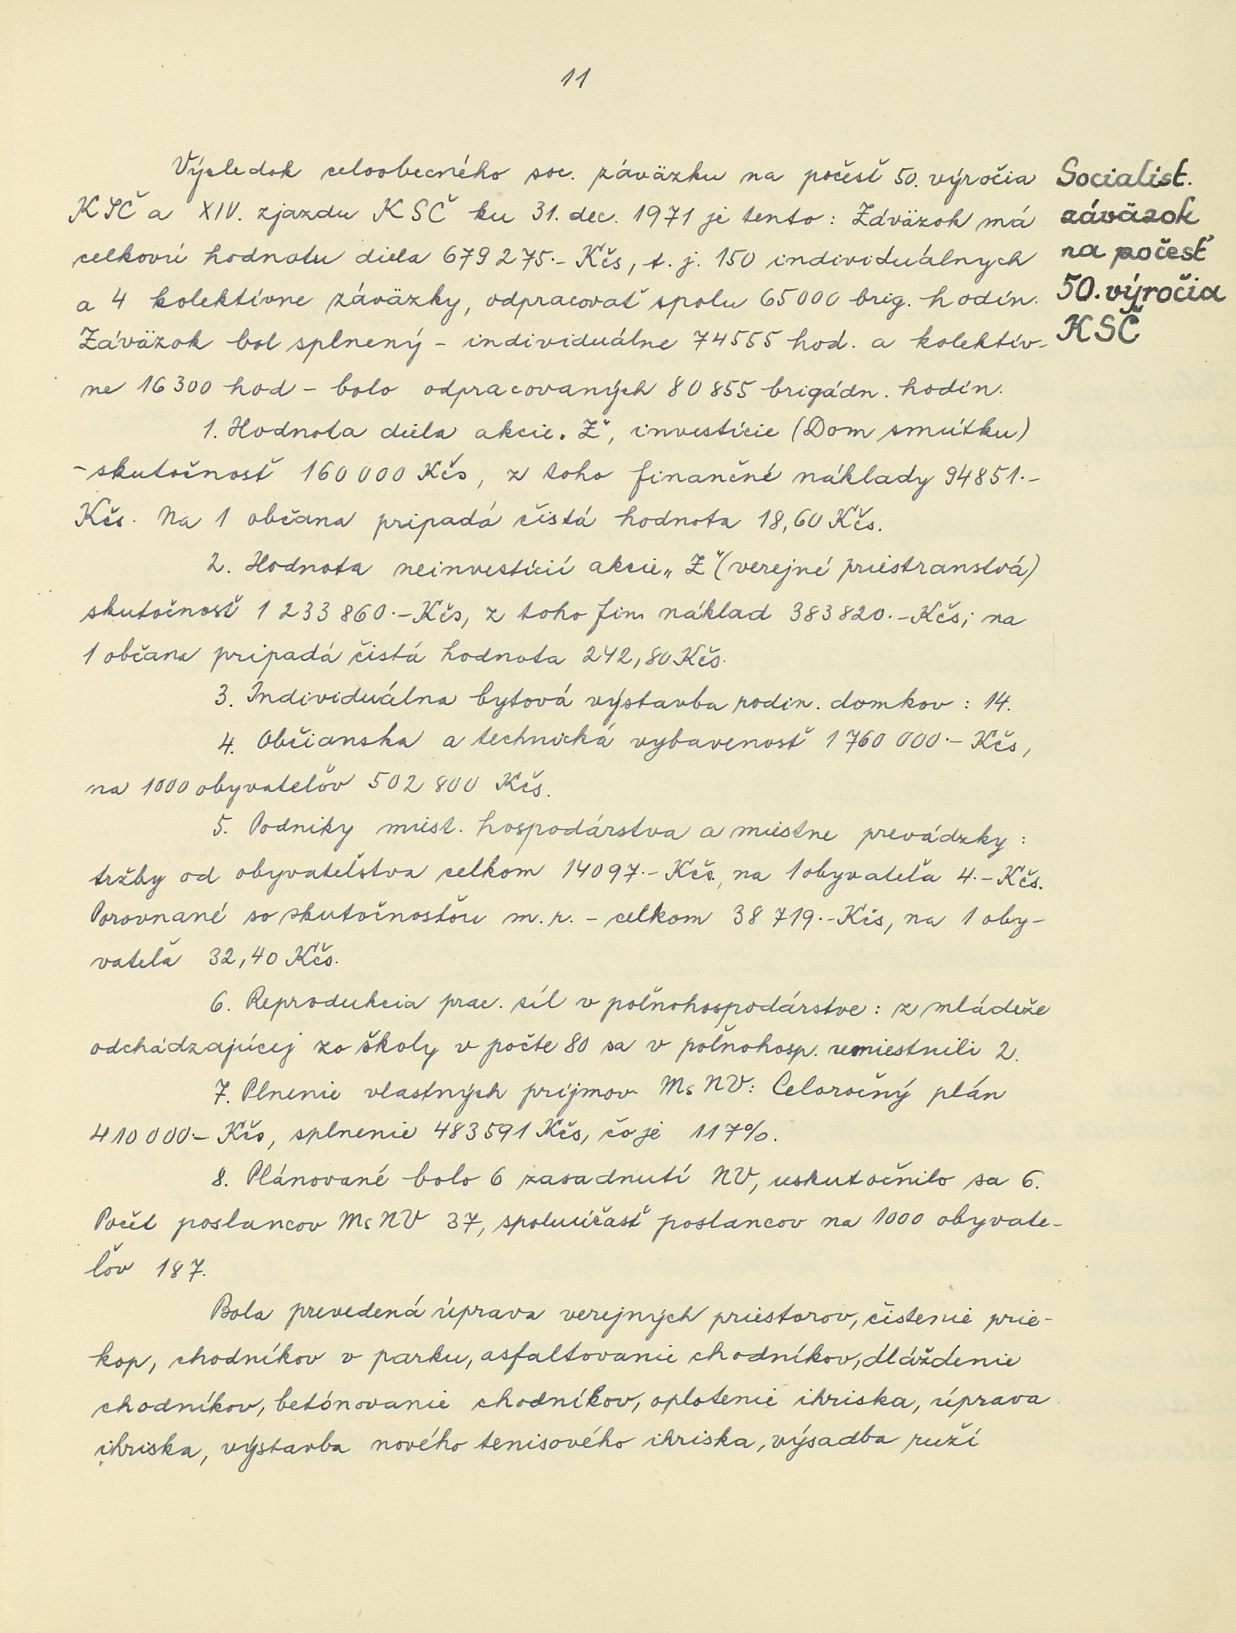 11
Výsledok celoobecného soc. záväzku na počesť 50. výročia
KSČ a XIV. zjazdu KSČ ku 31. dec. 1971 je tento: Záväzok má
celkovú hodnotu diela 679 275.- Kčs, t. j. 150 individuálnych
a 4 kolektívne záväzky, odpracovať spolu 65 000 brig. hodín.
Záväzok bol splnený - individuálne 74555 hod. a kolektív-
ne 16 300 hod - bolo odpracovaných 80 855 brigádn. hodín.
1. Hodnota diela akcie „Z", investície (Dom smútku)
- skutočnosť 160 000 Kčs, z toho finančné náklady 94851.-
Kčs. Na 1 občana pripadá čistá hodnota 18,60 Kčs.
2. Hodnota neinvestícií akcie „Z" (verejné priestranstvá)
skutočnosť 1 233 860.- Kčs, z toho fin. náklad 383 820.- Kčs; na
1 občana pripadá čistá hodnota 242,80 Kčs.
3. Individuálna bytová výstavba rodin. domkov : 14.
4. Občianska a technická vybavenosť 1 760 000.- Kčs,
na 1000 obyvateľov 502 800 Kčs.
5. Podniky miest. hospodárstva a miestne prevádzky :
tržby od obyvateľstva celkom 14 097.- Kčs, na 1 obyvateľa 4.- Kčs.
Porovnané so skutočnosťou m. r. - celkom 38 719.- Kčs, na 1 oby-
vateľa 32,40 Kčs.
6. Reprodukcia prac. síl v poľnohospodárstve : z mládeže
odchádzajúcej zo školy v počte 80 sa v poľnohosp. umiestnili 2.
7. Plnenie vlastných príjmov MsNV: Celoročný plán
410 000.- Kčs, splnenie 483 591 Kčs, čo je 117%.
8. Plánované bolo 6 zasadnutí NV, uskutočnilo sa 6.
Počet poslancov MsNV 37, spoluúčasť poslancov na 1000 obyvate-
ľov 187.
Bola prevedená úprava verejných priestorov, čistenie prie-
kop, chodníkov v parku, asfaltovanie chodníkov, dláždenie
chodníkov, betónovanie chodníkov, oplotenie ihriska, úprava
ihriska, výstavba nového tenisového ihriska, výsadba ruží
Socialist.
záväzok
na počesť
50. výročia
KSČ